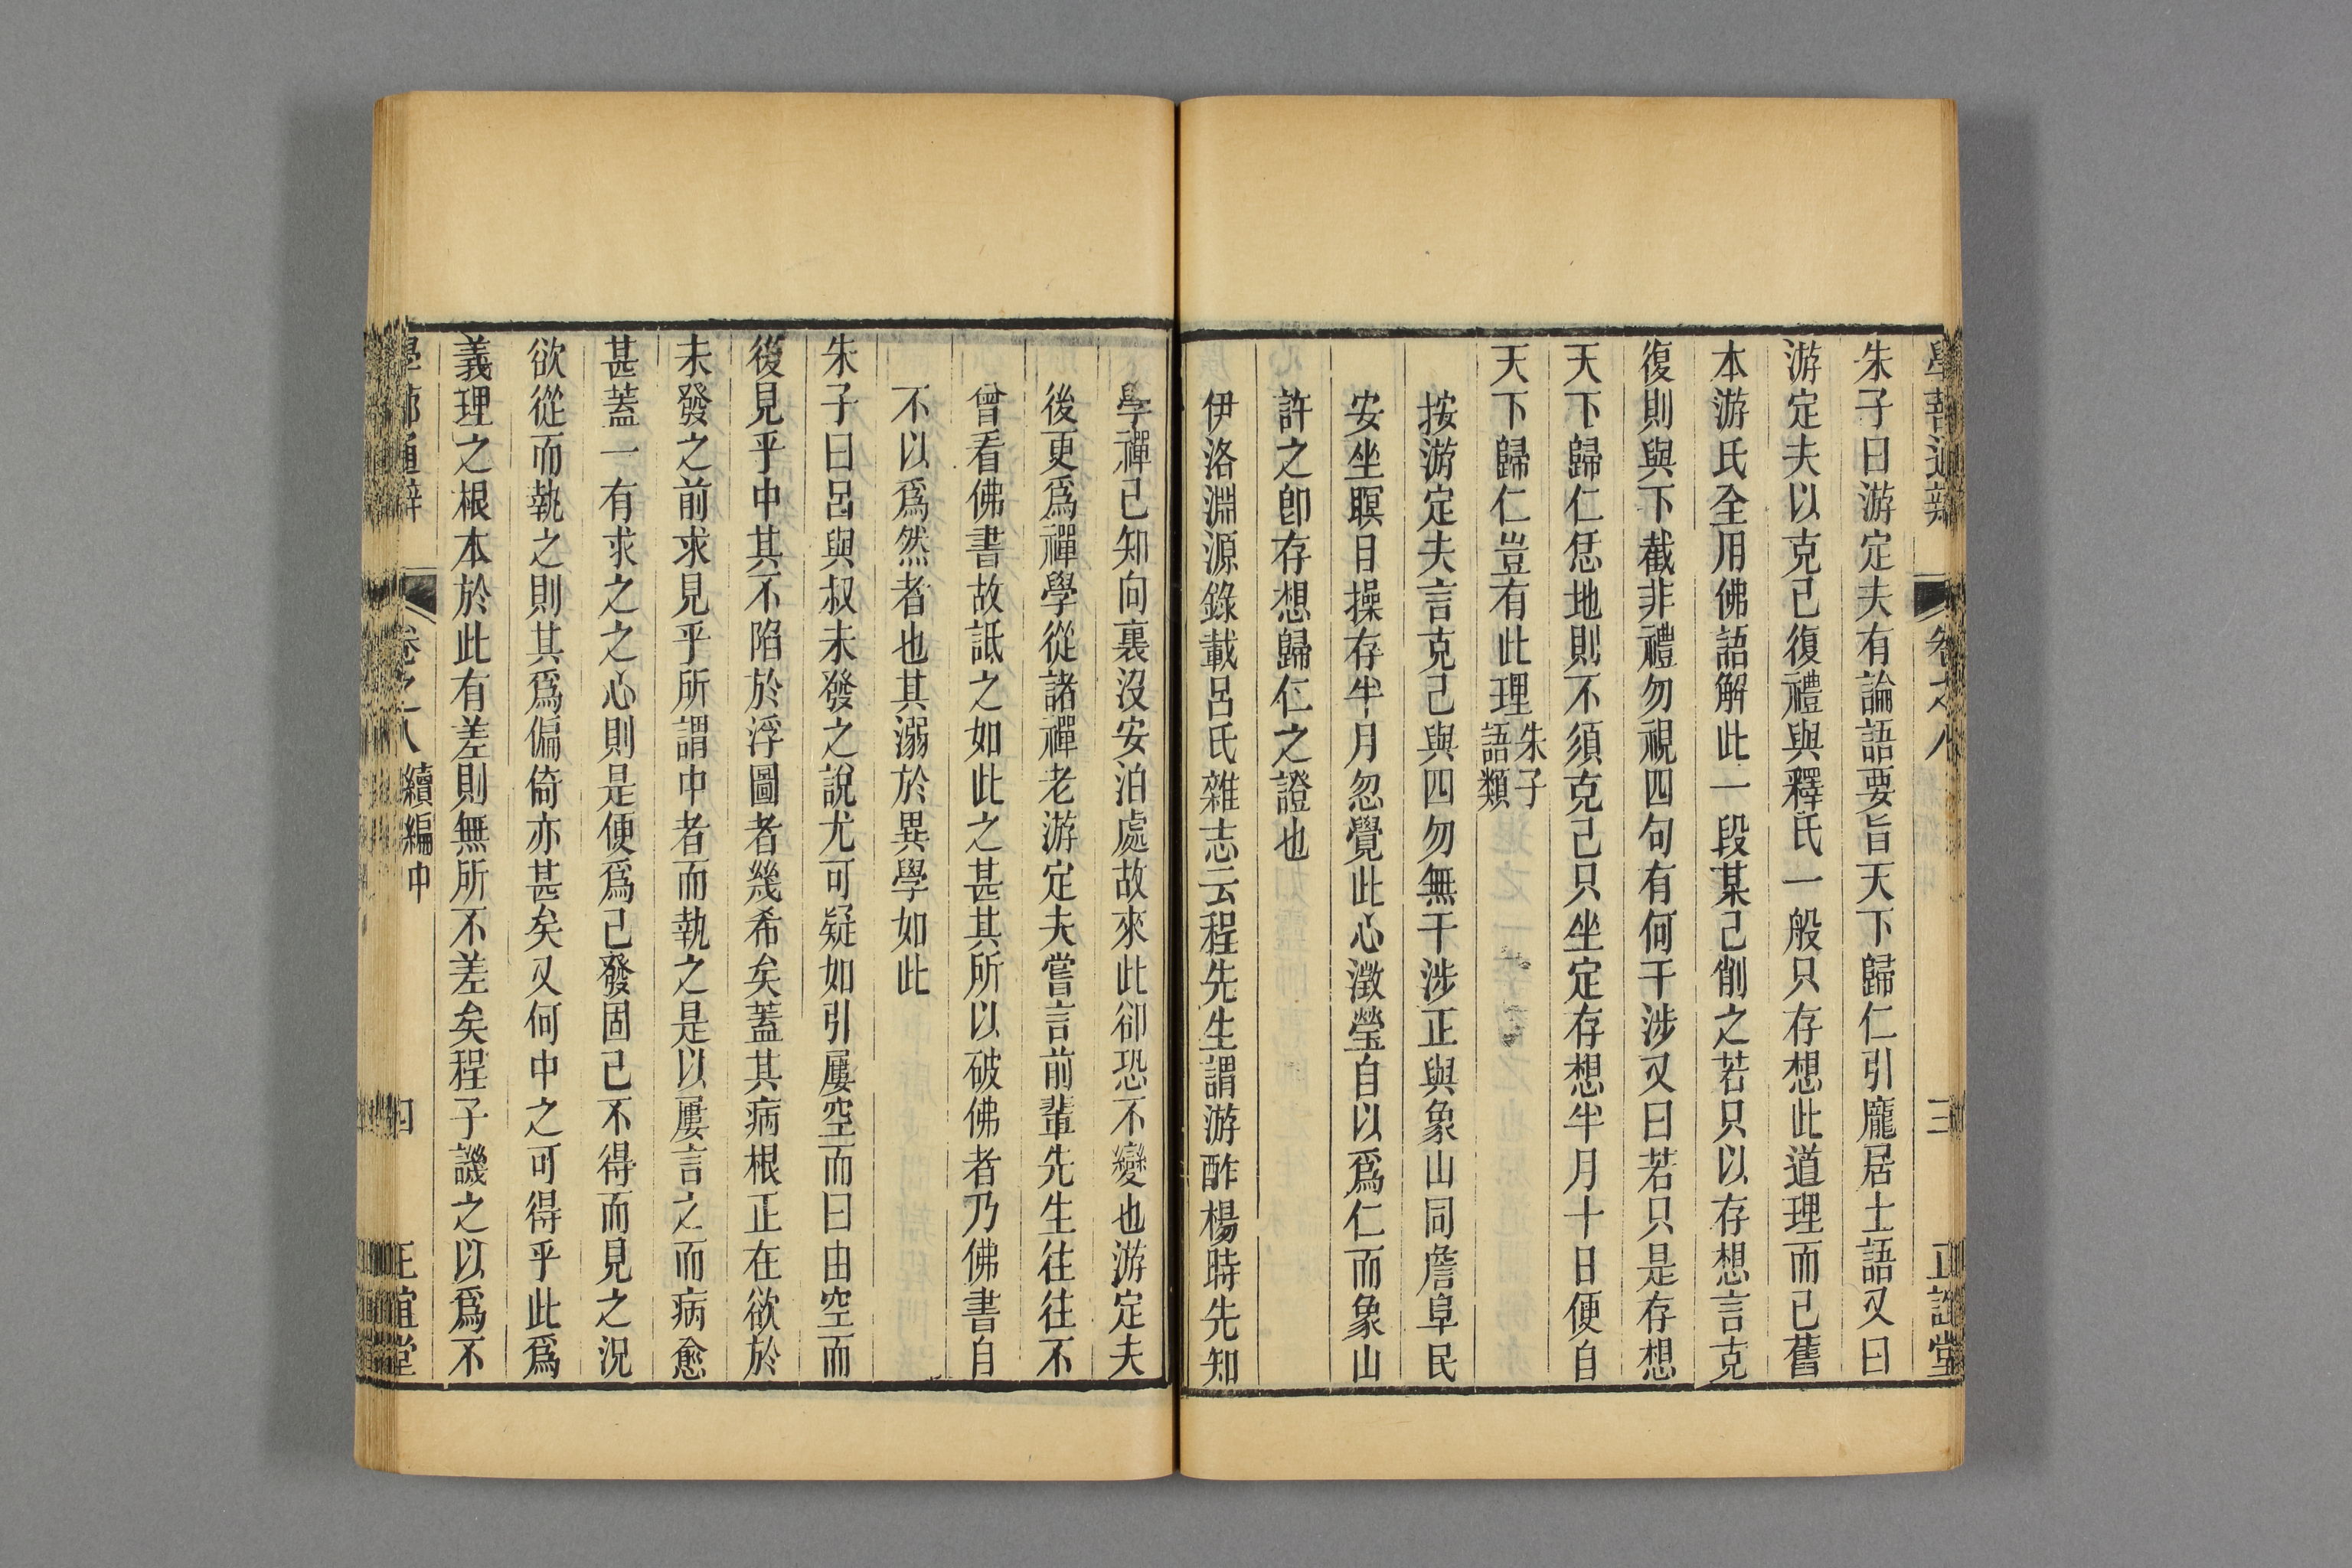 學蔀通辨 卷之八 三 正誼堂
朱子曰游定夫有論語要旨天下歸仁引龐居士語又曰
游定夫以克己復禮與釋氏一般只存想此道理而已舊
本游氏全用佛語解此一段某已削之若只以存想言克
復則與下截非禮勿視四句有何干涉又曰若只是存想
天下歸仁恁地則不須克己只坐定存想半月十日便自
天下歸仁豈有此理朱子
語類
按游定夫言克己與四勿無干涉正與象山同詹阜民
安坐瞑目操存半月忽覺此心澂瑩自以爲仁而象山
許之卽存想歸仁之證也
伊洛淵源錄載呂氏雜志云程先生謂游酢楊時先知
學禪已知向裏沒安泊處故來此卻恐不變也游定夫
後更爲禪學從諸禪老游定夫嘗言前輩先生往往不
曾看佛書故詆之如此之甚其所以破佛者乃佛書自
不以爲然者也其溺於異學如此
朱子曰呂與叔未發之說尤可疑如引屢空而曰由空而
後見乎中其不陷於浮圖者幾希矣蓋其病根正在欲於
未發之前求見乎所謂中者而執之是以屢言之而病愈
甚蓋一有求之之心則是便爲已發固已不得而見之況
欲從而執之則其爲偏倚亦甚矣又何中之可得乎此爲
義理之根本於此有差則無所不差矣程子譏之以爲不
學蔀通辨 卷之八 續編中 四 正誼堂